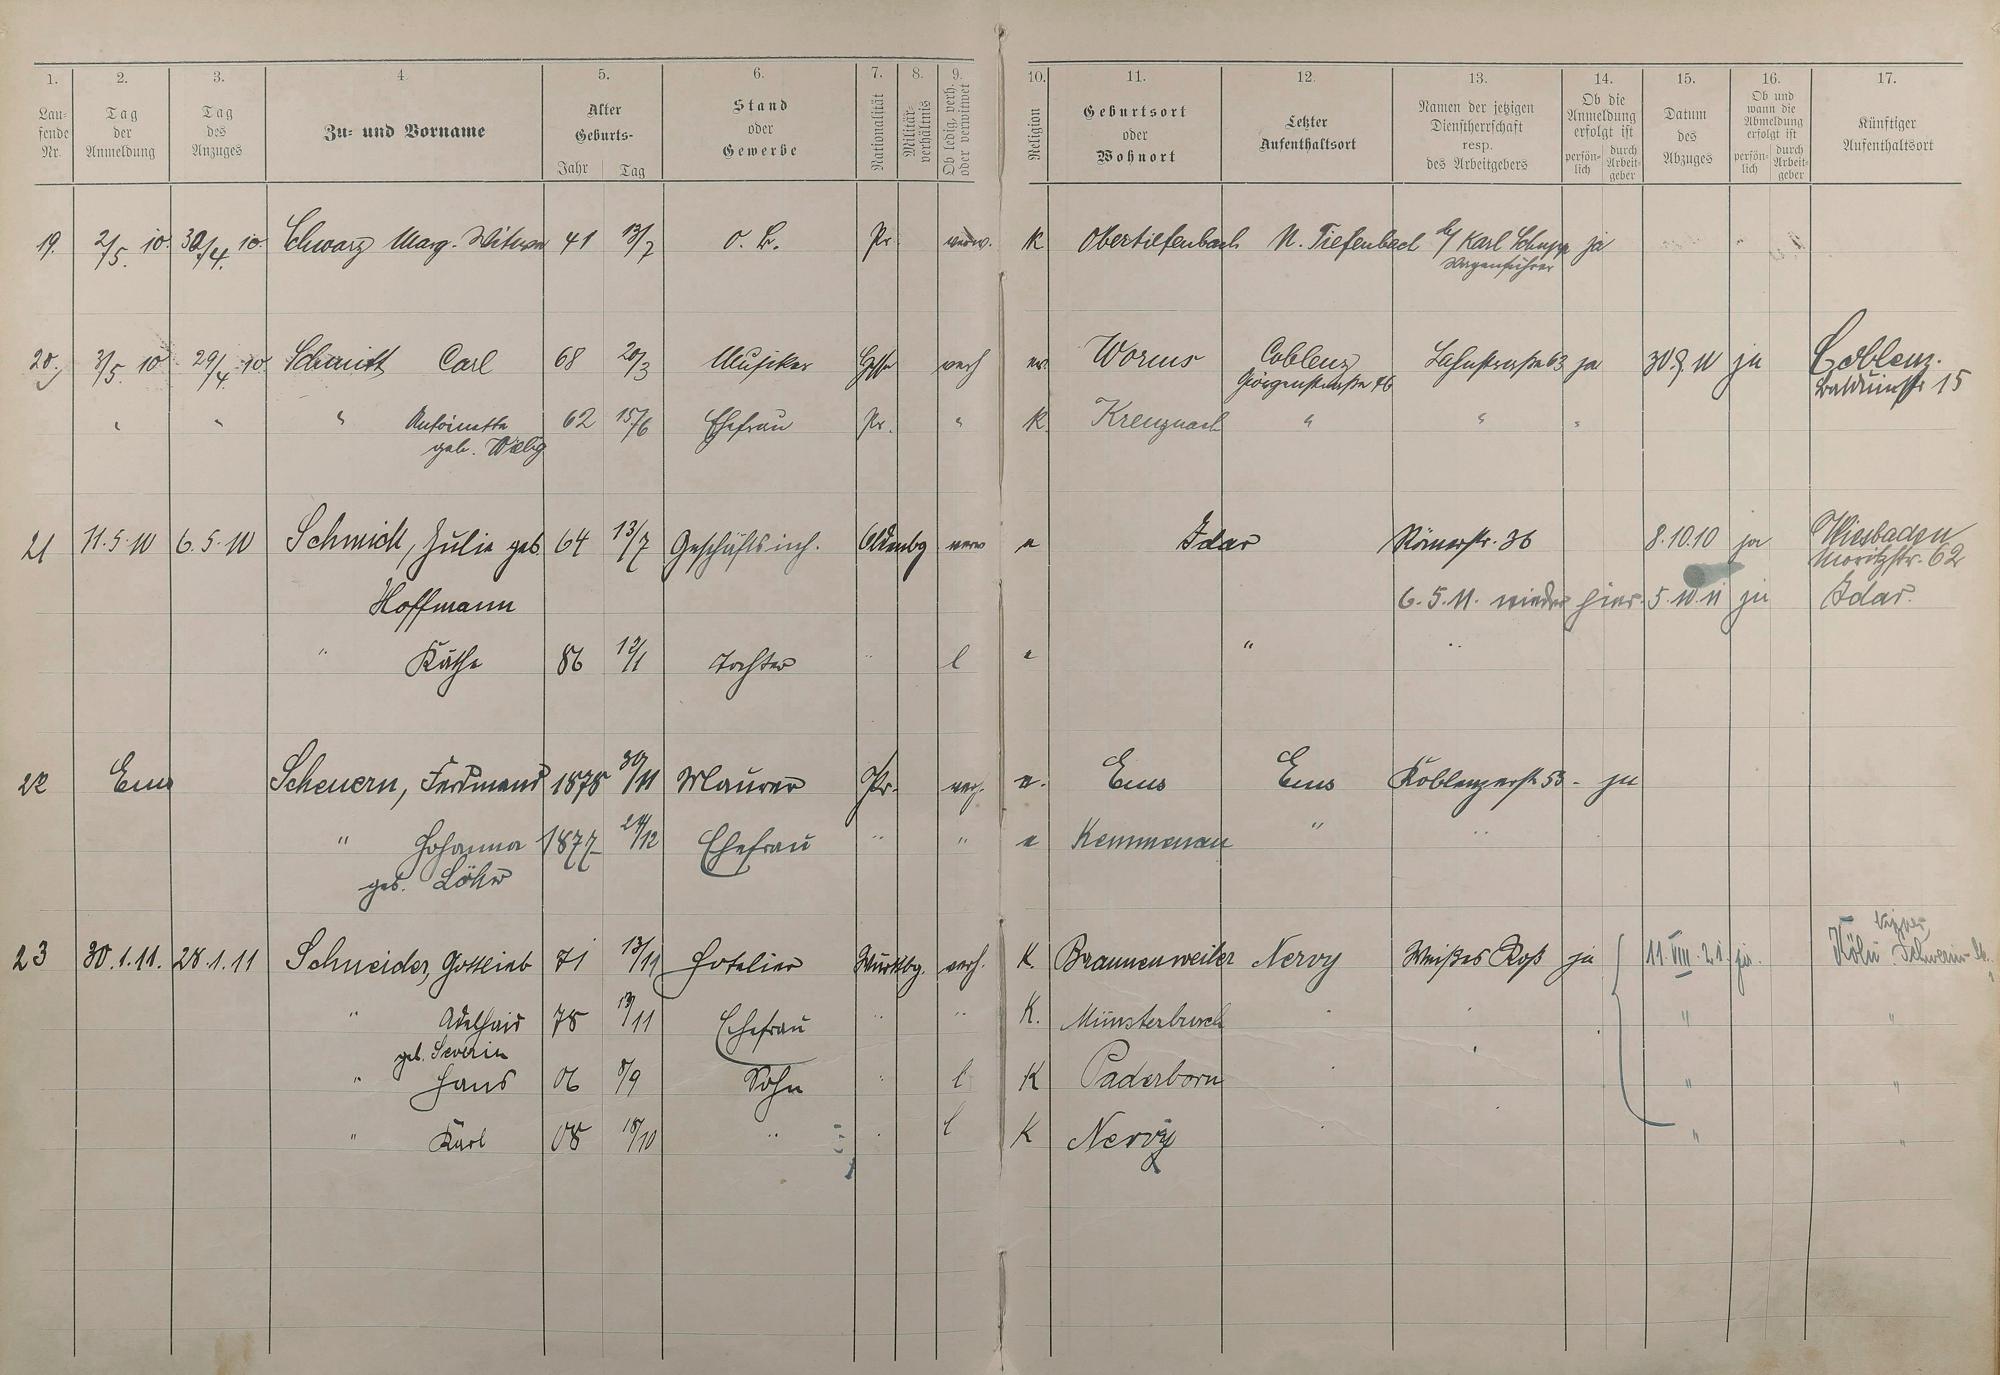 1. 2. 3. 4. 5. 6. 7. 8. 9. 10. 11. 12. 13. 14. 15. 16. 17.
Lau-
fende
Nr.
Tag
der
Anmeldung
Tag
des
Anzuges
Zu- und Vorname
Alter
Geburts-
Jahr Tag
Stand
oder
Gewerbe
Nationalität
Militär-
verhältnis
Ob ledig, verh.
oder verwitwet
Religion
Geburtsort
oder
Wohnort
Letzter
Aufenthaltsort
Namen der jetzigen
Dienstherrschaft
resp.
des Arbeitgebers
Ob die
Anmeldung
erfolgt ist
persön-
lich
durch
Arbeit-
geber
Datum
des
Abzuges
Ob und
wann die
Abmeldung
erfolgt ist
persön-
lich
durch
Arbeit-
geber
Künftiger
Aufenthaltsort
19. 2/5. 10. 30/4. 10. Schwarz Marg. Witwe 41 13/7 o. B. Pr. verw. K Obertiefenbach N. Tiefenbach b/ Karl Schupp ja
Wagenführer
20. 3/5. 10 29/4. 10. Schmitt Carl 68 20/3 Musiker Hesse verh ev. Worms Coblenz Lahnstraße 63 ja 30.9.10 ja Coblenz.
46 Balduinstr 15
" " " Antoinette 62 15/6 Ehefrau Pr. " K. Kreuznach " " "
geb.
21 11.5.10 6.5.10 Schmidt, Julie geb 64 13/7 Geschäftsinh. Oldenbg verw e Idar Römerstr. 36 8.10.10 ja Wiesbaden
Moritzstr. 62
Hoffmann 6.5.11. wieder hier. 5.10.11 ja Idar.
" Käthe 86 12/1 Tochter " l e " "
22 Ems Scheuern, Ferdinand 1878 30/11 Maurer Pr. verh. e. Ems Ems Koblenzerstr. 53 - ja
" Johanna 1877 24/12 Ehefrau " " e Kemmenau " "
geb. Löhr
23 30.1.11. 28.1.11 Schneider, Gottlieb 71 13/11 Hotelier Württbg. verh. K. Braunenweiler Nervy Weißes Roß ja 11.VIII.21. ja. Köln
" Adelheid 78 13/11 Ehefrau " " K. Münsterbusch " " " " "
geb. Severin
" Hans 06 8/9 Sohn " l K Paderborn " " " "
" Karl 08 18/10 " " l K Nervy " " " "